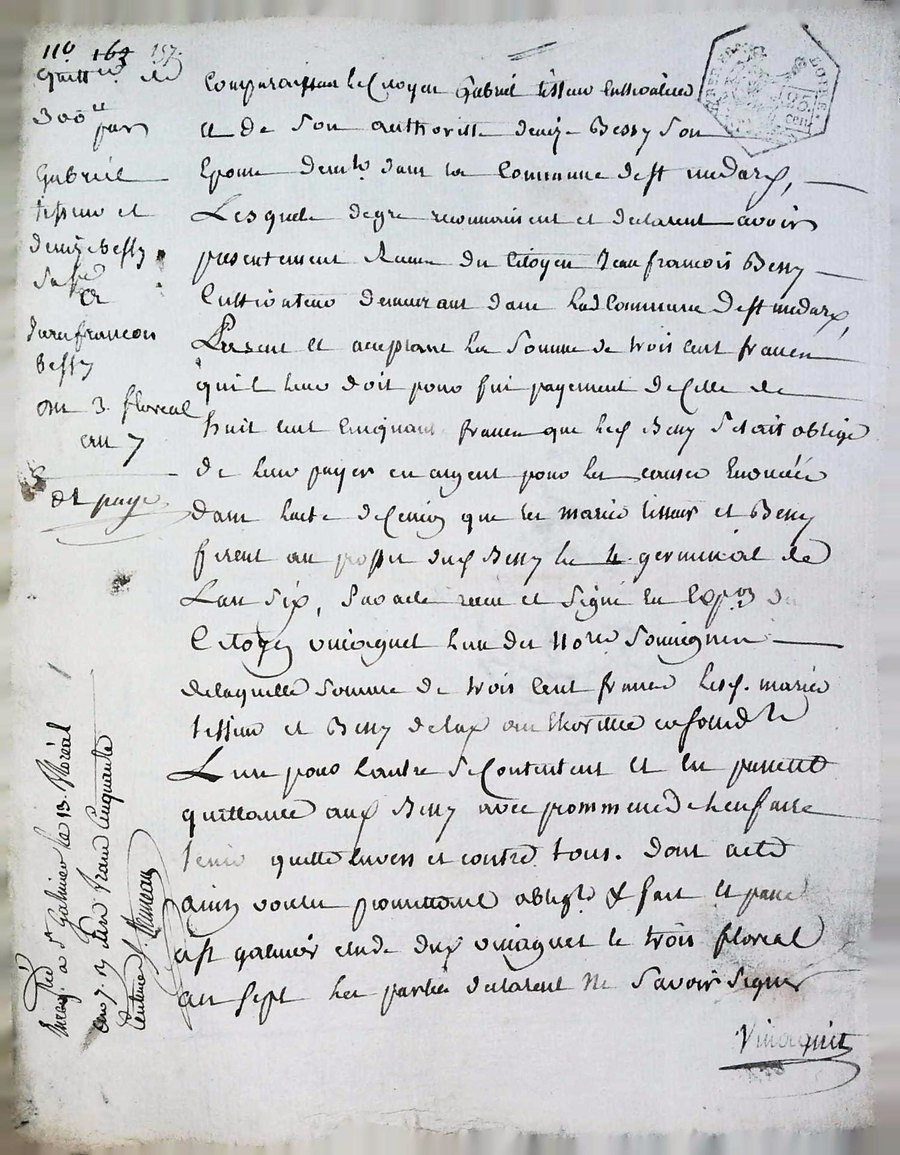 110 163 157
quitt.ce de
300"
par
Gabriel
tisseur et
deniz bessy
sa fe
a
Jean francois
Bessy
du 3. floreal
an 7
dt payé
Comparaissan le Citoyen Gabriel tisseur Cultivateur
et de son authorité denize Bessy son
Epouse demt dans la Commune de st medard,
Lesquels de gré reconnaissent et declarent avoir
presentement Recu du Citoyen Jean francois Bessy
Cultivateur demeurant dans lad Commune de st medard,
Present et acceptant la Somme de trois cent francs
quil leur doit pour fin payement de Celle de
huit cent Cinquante francs que led Bessy Setait obligé
de leur payer en argent pour les causes Enoncées
dans lacte de que les mariés tisseur et Bessy
firent au profit dud Bessy le 4 germinal de
Lan Six, Suivant acte recu et Signé En Expon du
Citoyen vincaguet lun des Nores Soussignes
de laquelle Somme de trois Cent francs lesd. mariés
tisseur et Bessy delad authorité
Lun pour Lautre Se Contentent et en passent
quittance aud Bessy avec prommesse de len faire
tenir quitte Envers et contre tous. dont acte
ainsi voulu promettant obligt & fait et passé
a st galmier etude dud vincaguet le trois floreal
an Sept les parties declarent ne Savoir Signer
Vincaguet
Enreg. a St Galmier le 13 floréal
an 7. R deux francs Cinquante
Centimes